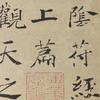 陰符經
上篇
觀天之